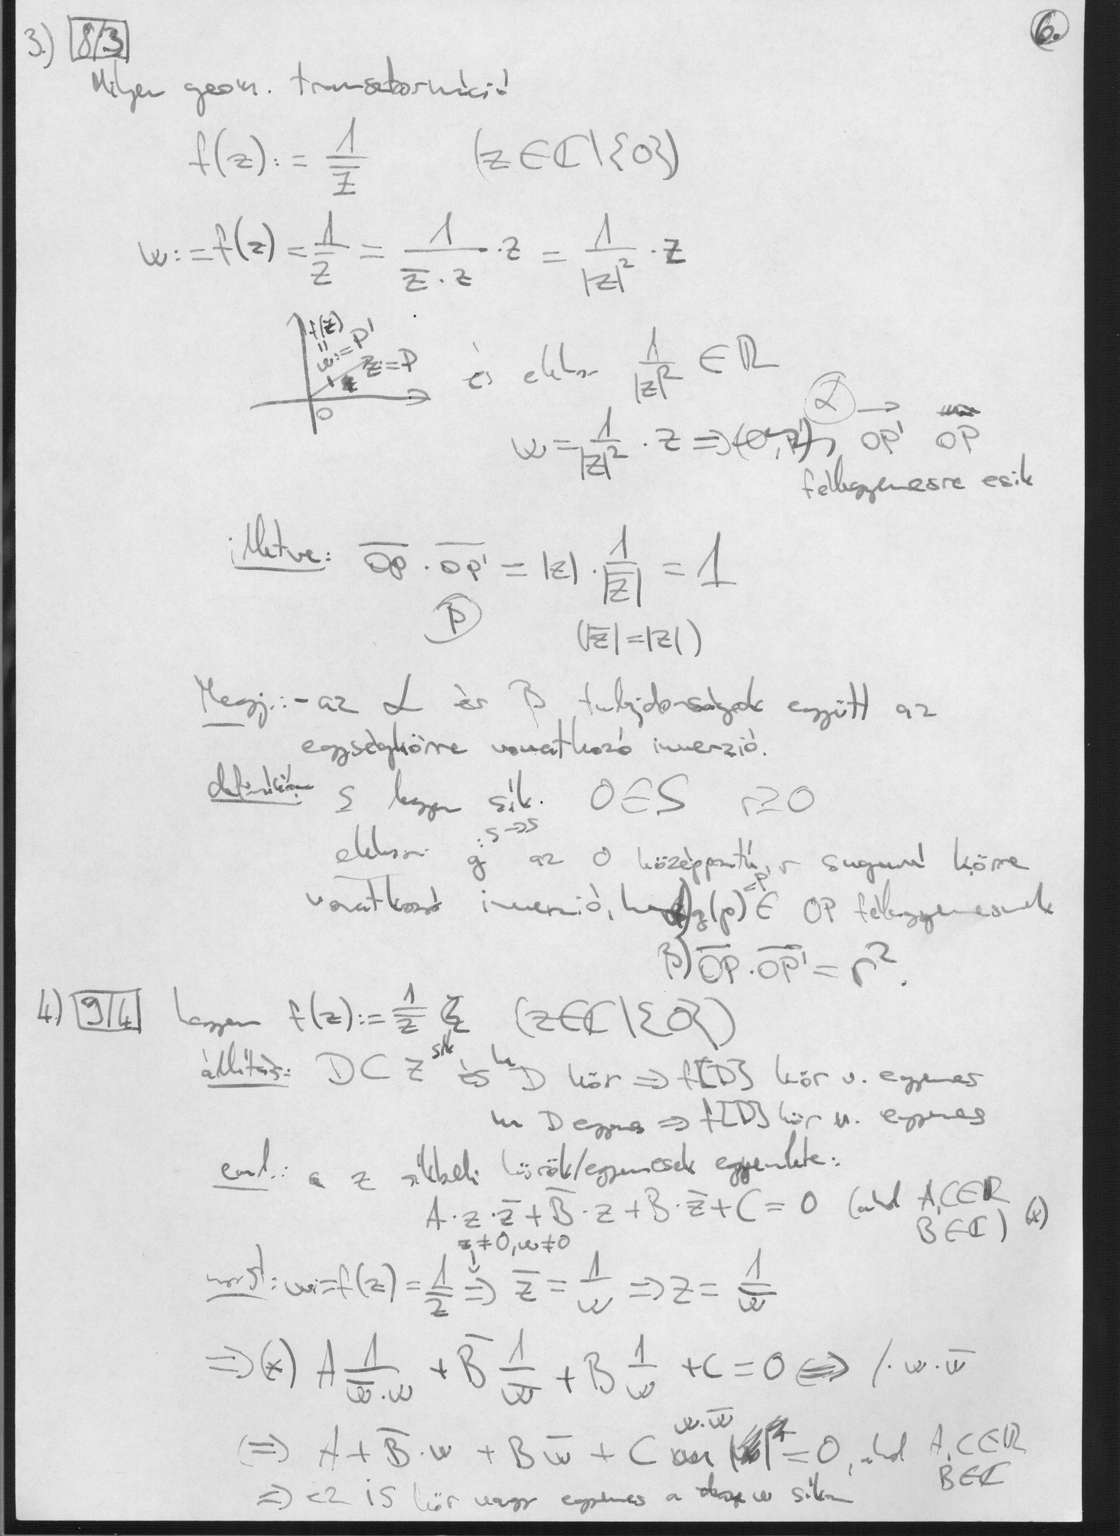 6.
3.) 8/3
Milyen geom. transzformáció
f(z) := 1/z̅ (z∈ℂ\{0})
w := f(z) = 1/z̅ = 1/(z̅·z) · z = 1/|z|² · z
f(z)
w:=P'
z:=P
0
és ekkor 1/|z|² ∈ ℝ
w = 1/|z|² · z ⇒ α OP'
félegyenesre esik
illetve: OP · OP' = |z| · 1/|z̅| = 1
β (|z̅|=|z|)
Megj.: - az α és β tulajdonságok együtt az
egységkörre vonatkozó inverzió.
definíció: S legyen sík. O∈S r≥0
ekkor g :S→S az O középpontú, r sugarú körre
vonatkozó inverzió, ha α) g(p)=P' ∈ OP félegyenesnek
β) OP·OP' = r².
4.) 9/4 legyen f(z) := 1/z̅ (z∈ℂ\{0})
állítás: D⊂Z sík és ha D kör ⇒ f[D] kör v. egyenes
ha D egyenes ⇒ f[D] kör v. egyenes
a z síkbeli körök/egyenesek egyenlete:
A·z·z̅ + B̅·z + B·z̅ + C = 0 (ahol A,C∈ℝ B∈ℂ) (*)
z≠0, w≠0
most: w:=f(z) = 1/z̅ ⇒ z̅ = 1/w ⇒ z = 1/w̅
⇒ (*) A 1/(w̅·w) + B̅ 1/w̅ + B 1/w + C = 0 ⇔ /·w·w̅
(⇒) A + B̅·w + B w̅ + C w·w̅ = 0, ahol A,C∈ℝ B∈ℂ
⇒ ez is kör vagy egyenes a w síkon